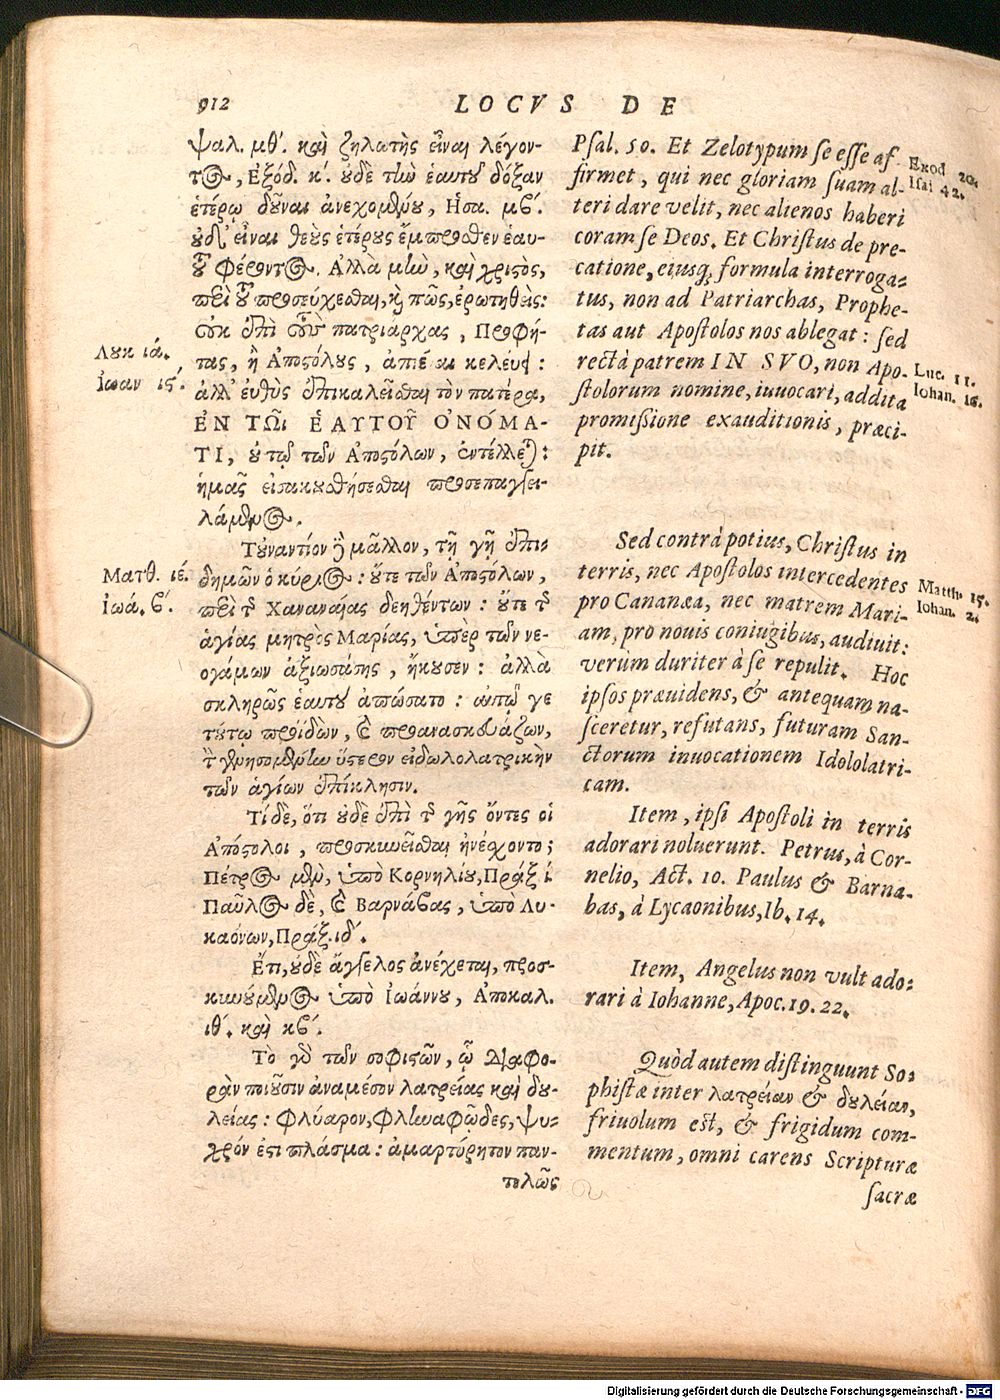 912 LOCVS DE
ψαλ. μθ'. καὶ ζηλωτὴς εἶναι λέγον-
τος, Ἐξόδ. κ'. οὐδὲ τὴν ἑαυτοῦ δόξαν
ἑτέρῳ δοῦναι ἀνεχομένου, Ησα. μβ'.
οὐδ' εἶναι θεοὺς ἑτέρους ἔμπροσθεν ἑαυ-
τοῦ φέροντος. Ἀλλὰ μὴν, καὶ χριστὸς,
περὶ τοῦ προσεύχεσθαι, καὶ πῶς, ἐρωτηθεὶς:
οὐκ ἐπὶ τοὺς πατριάρχας, Προφή-
τας, ἢ Ἀποστόλους, ἀπιέναι κελεύει:
ἀλλ' εὐθὺς ἐπικαλεῖσθαι τὸν πατέρα,
ἘΝ ΤΩι ἙΑΥΤΟΥ ὈΝΟΜΑ-
ΤΙ, οὐ τῷ τῶν Ἀποστόλων, ἐντέλλεται:
ἡμᾶς εἰσακουσθήσεσθαι προσεπαγγει-
λάμενος.
Λουκ ιά.
Ἰωαν ις'.
Τοὐναντίον γὰρ μᾶλλον, τῇ γῇ ἐπι-
δημῶν ὁ κύριος: οὔτε τῶν Ἀποστόλων,
περὶ τῆς Χαναναίας δεηθέντων: οὔτε τῆς
ἁγίας μητρὸς Μαρίας, ὑπὲρ τῶν νε-
ογάμων ἀξιωσάσης, ἤκουσεν: ἀλλὰ
σκληρῶς ἑαυτοῦ ἀπώσατο: αὐτῷ γε
τούτῳ προϊδὼν, καὶ προανασκευάζων,
τὴν γενησομένην ὕστερον εἰδωλολατρικὴν
τῶν ἁγίων ἐπίκλησιν.
Ματθ. ιέ.
Ἰωά. β'.
Τί δὲ, ὅτι οὐδὲ ἐπὶ τῆς γῆς ὄντες οἱ
Ἀπόστολοι, προσκυνεῖσθαι ἠνέχοντο;
Πέτρος μὲν, ὑπὸ Κορνηλίου, Πράξ ί.
Παῦλος δὲ, καὶ Βαρνάβας, ὑπὸ Λυ-
καόνων, Πράξ. ιδ'.
Ἔτι, οὐδὲ ἄγγελος ἀνέχεται, προσ-
κυνούμενος ὑπὸ Ἰωάννου, Ἀποκαλ.
ιθ'. καὶ κβ'.
Τὸ γὰρ τῶν σοφιστῶν, ᾧ διαφο-
ρὰν ποιοῦσιν ἀναμέσον λατρείας καὶ δου-
λείας: φλύαρον, φληναφῶδες, ψυ-
χρόν ἐστι πλάσμα: ἀμαρτύρητον παν-
τολῶς
Psal. 50. Et Zelotypum se esse af-
firmet, qui nec gloriam suam al-
teri dare velit, nec alienos haberi
coram se Deos. Et Christus de pre-
catione, eiusq́, formula interroga-
tus, non ad Patriarchas, Prophe-
tas aut Apostolos nos ablegat: sed
rectà patrem IN SVO, non Apo-
stolorum nomine, inuocari, addita
promissione exauditionis, præci-
pit.
Exod 20.
Isai 42.
Luc. 11.
Iohan. 16.
Sed contrà potius, Christus in
terris, nec Apostolos intercedentes
pro Cananæa, nec matrem Mari-
am, pro nouis coniugibus, audiuit:
verum duriter à se repulit. Hoc
ipsos præuidens, & antequam na-
sceretur, refutans, futuram San-
ctorum inuocationem Idololatri-
cam.
Matth. 15.
Iohan. 2.
Item, ipsi Apostoli in terris
adorari noluerunt. Petrus, à Cor-
nelio, Act. 10. Paulus & Barna-
bas, à Lycaonibus, Ib. 14.
Item, Angelus non vult ado-
rari à Iohanne, Apoc. 19. 22.
Quòd autem distinguunt So-
phistæ inter λατρείαν & δουλείαν,
friuolum est, & frigidum com-
mentum, omni carens Scripturæ
sacræ
Digitalisierung gefördert durch die Deutsche Forschungsgemeinschaft - DFG